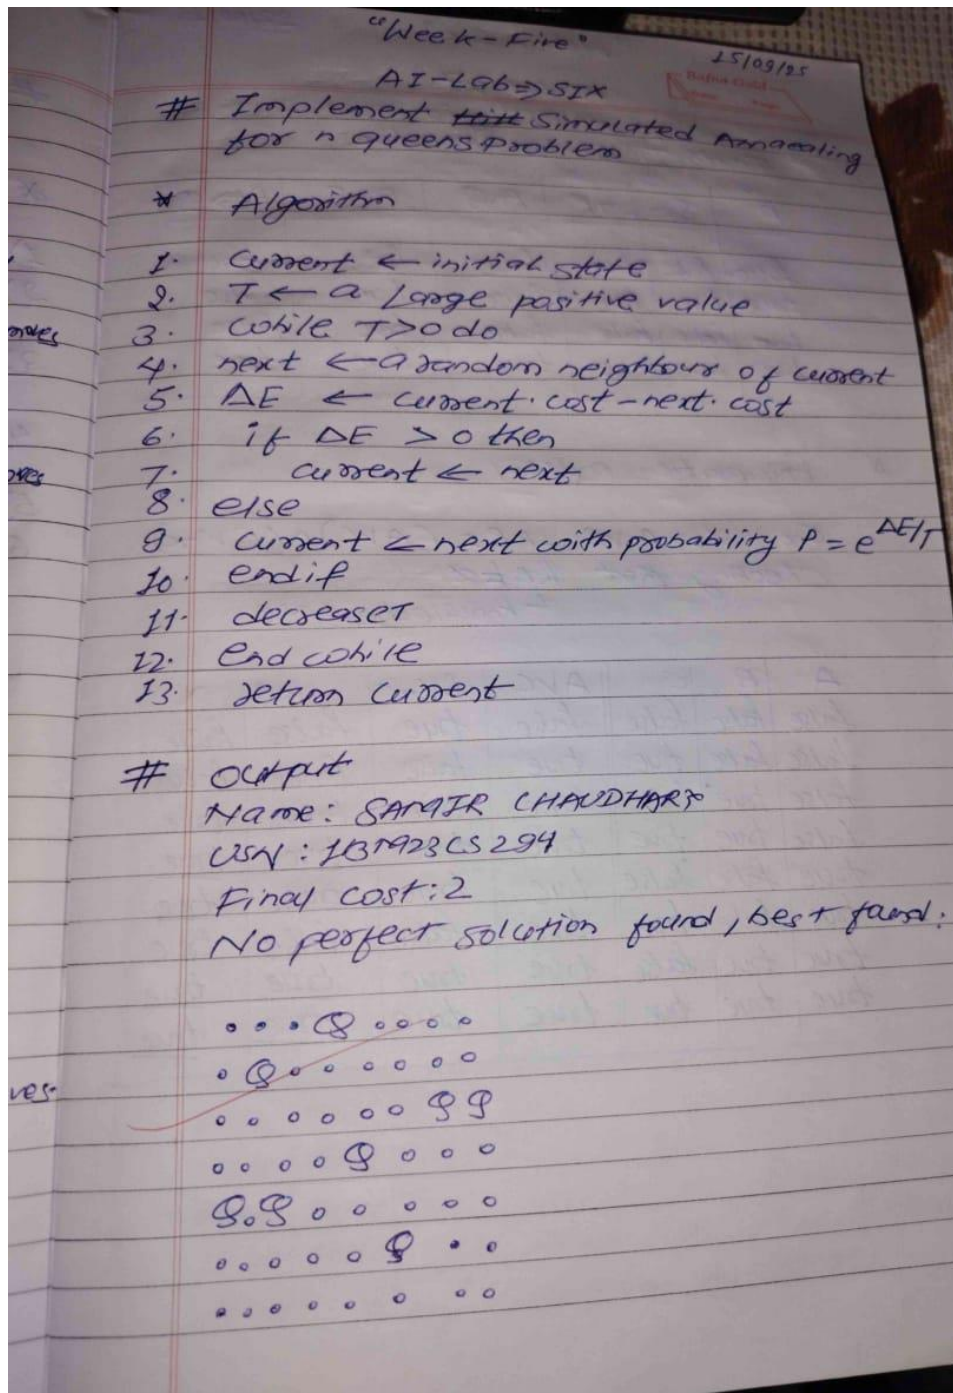 "Week-Five"
15/09/25
AI-Lab⇒SIX
# Implement Simulated Annaealing
for n queens problem
* Algorithm
1. Current ← initial state
2. T ← a large positive value
3. while T>0 do
4. next ← a random neighbour of current
5. ΔE ← current.cost-next.cost
6. if ΔE > 0 then
7. current ← next
8. else
9. current ← next with probability P = e^ΔE/T
10. endif
11. decrease T
12. end while
13. return current
# Output
Name: SAMIR CHAUDHARY
USN: 1BM23CS294
Final cost: 2
No perfect solution found, best found:
. . . Q . . . .
. Q . . . . . .
. . . . . . Q Q
. . . . Q . . .
Q . Q . . . . .
. . . . . Q . .
. . . . . . . .